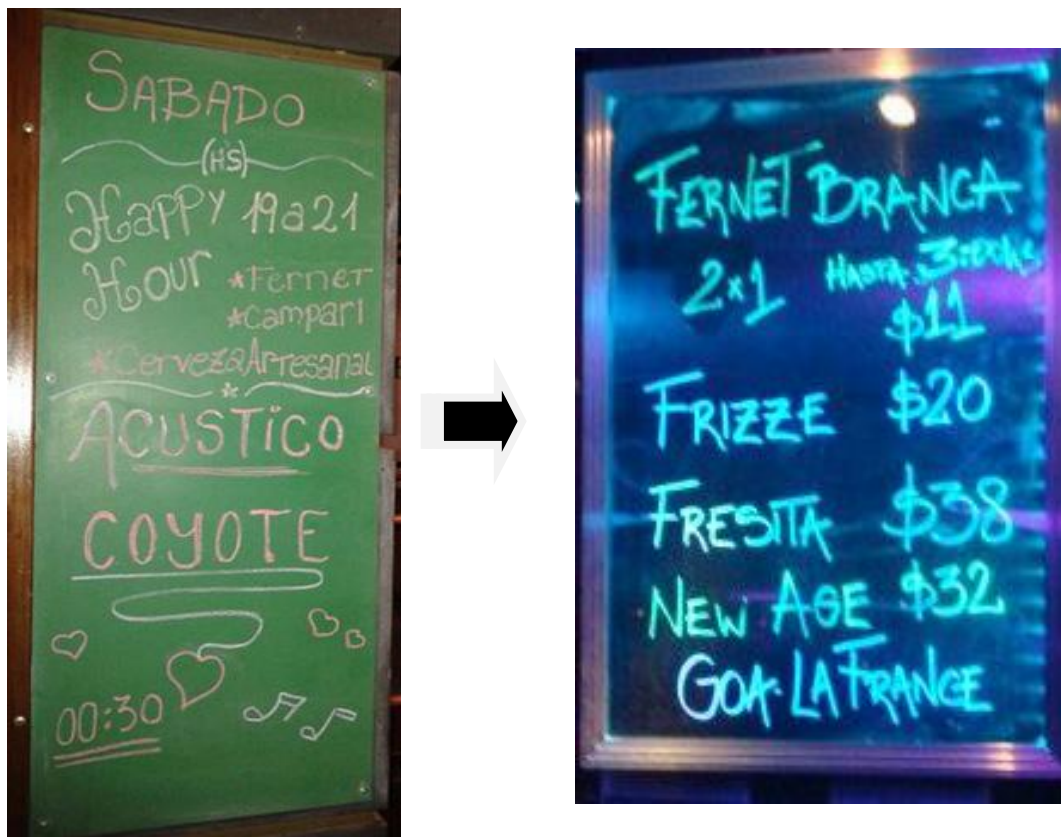 SABADO
(HS)
Happy 19a21
Hour *Fernet
*Campari
*CervezaArtesanal
*
ACUSTiCO
COYOTE
00:30
FERNET BRANCA
2x1 HASTA 3:00HS
$11
FRIZZE $20
FRESITA $38
NEW AGE $32
GOA·LA FRANCE